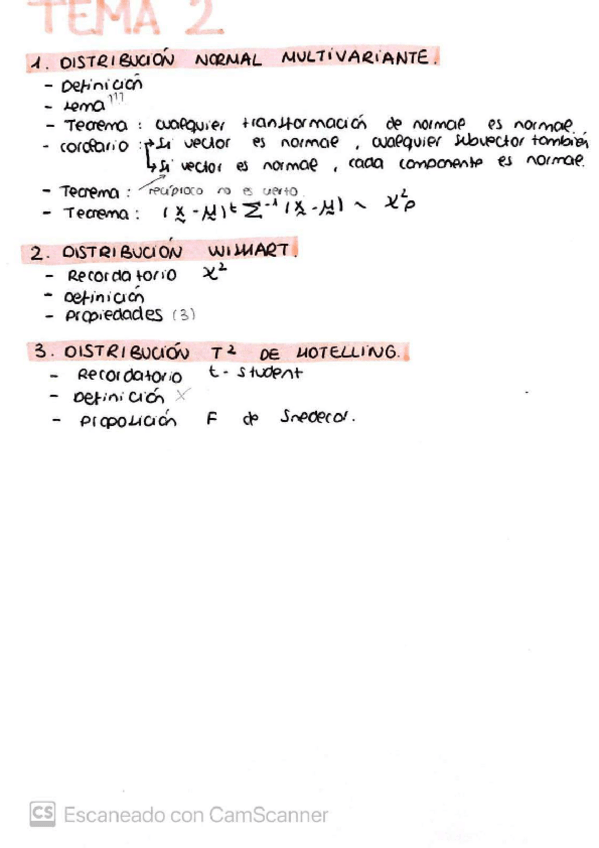 TEMA 2
1. DISTRIBUCIÓN NORMAL MULTIVARIANTE.
- Definición
- Lema !!!
- Teorema : cualquier transformación de normal es normal.
- corolario : → Si vector es normal, cualquier subvector también
→ Si vector es normal, cada componente es normal.
- Teorema : recíproco no es cierto.
- Teorema : (x - μ)ᵗ Σ⁻¹ (x - μ) ~ χ²p
2. DISTRIBUCIÓN WISHART.
- Recordatorio χ²
- Definición
- Propiedades (3)
3. DISTRIBUCIÓN T² DE HOTELLING.
- Recordatorio t - student
- Definición X
- Proposición F de Snedecor.
CS Escaneado con CamScanner